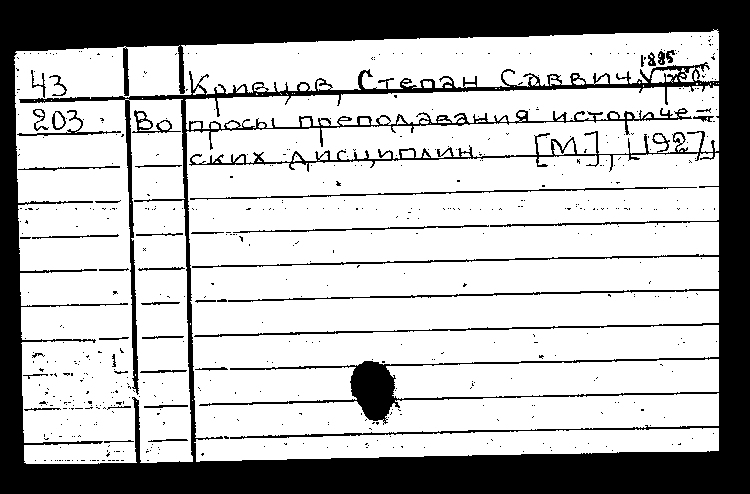 1885
43 Кривцов, Степан Саввич, ред.
203 Вопросы преподавания историче=
ских дисциплин. [М.], [1927]